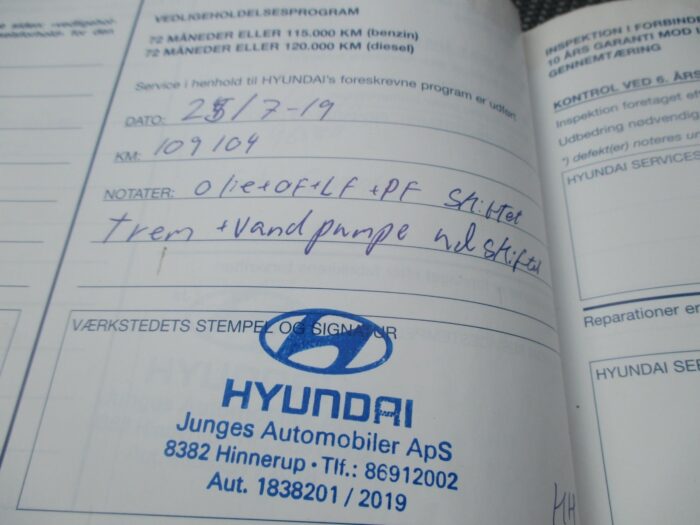 e siden: «vedligehol-
for den
VEDLIGEHOLDELSESPROGRAM
72 MÅNEDER ELLER 115.000 KM (benzin)
72 MÅNEDER ELLER 120.000 KM (diesel)
Service i henhold til HYUNDAI's foreskrevne program er udført
DATO: 25/7-19
KM: 109104
NOTATER: Olie+OF+LF+PF Skiftet
Trem +Vandpumpe ud Skiftet
VÆRKSTEDETS STEMPEL OG SIGNATUR
HYUNDAI
Junges Automobiler ApS
8382 Hinnerup · Tlf.: 86912002
Aut. 1838201 / 2019
INSPEKTION I FORBIND
10 ÅRS GARANTI MOD
GENNEMTÆRING
KONTROL VED 6. ÅRS
Inspektion foretaget ef
Udbedring nødvendig
*) defekt(er) noteres un
HYUNDAI SERVICES
Reparationer er
HYUNDAI SER
HH